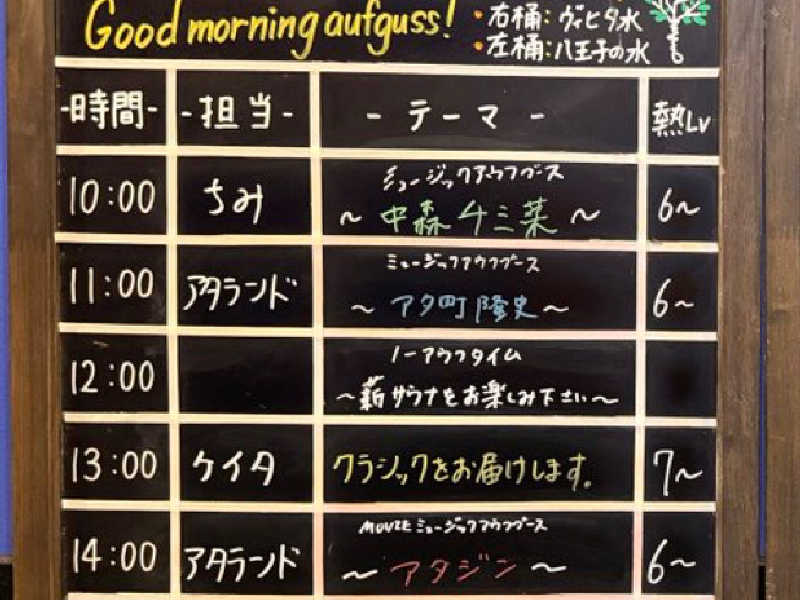 Good morning aufguss!
・右桶：ヴィヒタ水
・左桶：八王子の水
-時間- -担当- - テーマ - 熱Lv
10:00 ちみ ミュージックアウフグース 6〜
〜 中森チミ菜 〜
11:00 アタランド ミュージックアウフグース 6〜
〜 アタ町隆史 〜
12:00 ノーアウフタイム
〜薪サウナをお楽しみ下さい〜
13:00 ケイタ クラシックをお届けします。 7〜
14:00 アタランド MOVIEミュージックアウフグース 6〜
〜 アタジン 〜